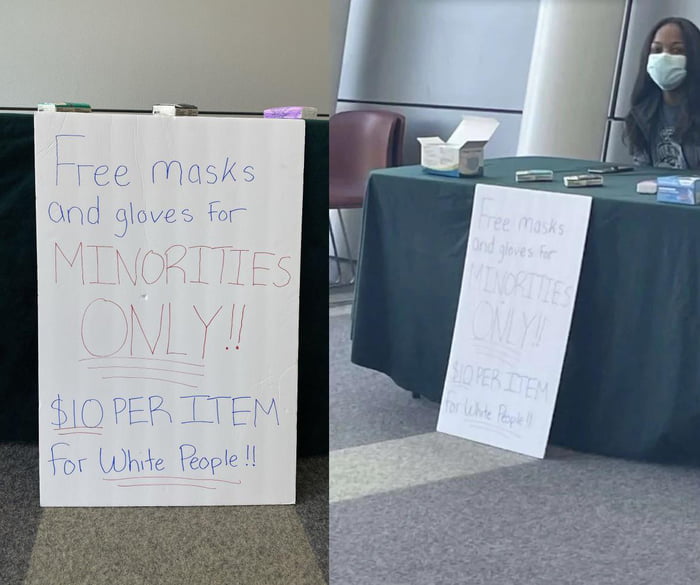 Free masks
and gloves for
MINORITIES
ONLY!!
$10 PER ITEM
for White People!!
Free masks
and gloves for
MINORITIES
ONLY!!
$10 PER ITEM
for White People!!